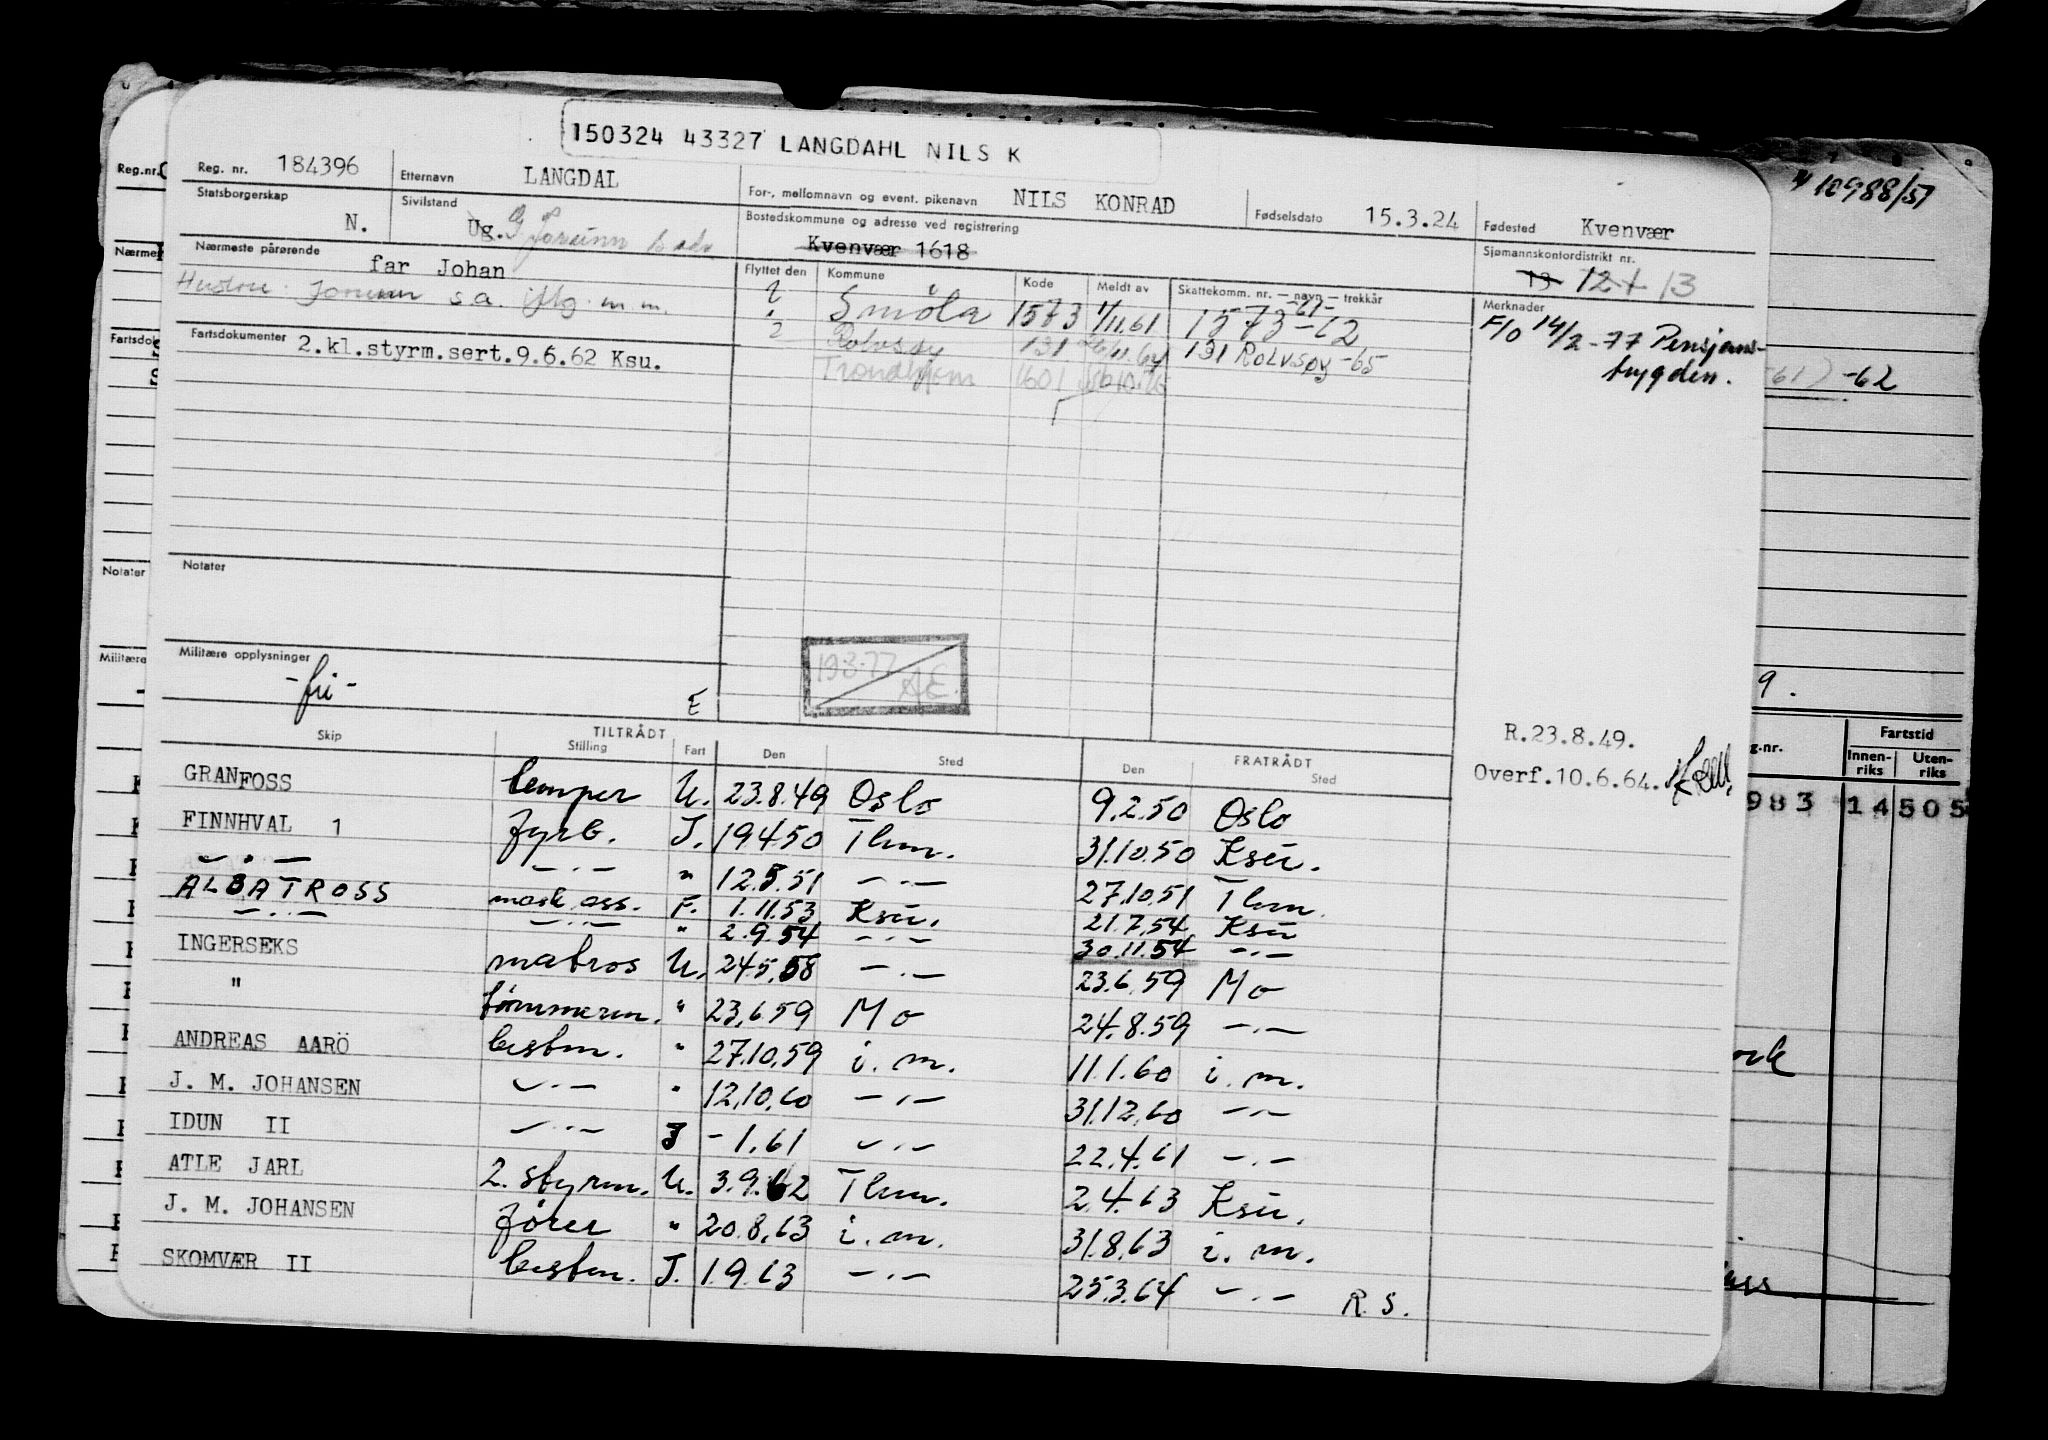 150324 43327 LANGDAHL NILS K
Reg. nr. 184396 Etternavn LANGDAL For-, mellomnavn og event. pikenavn NILS KONRAD Fødselsdato 15.3.24 Fødested Kvenvær
Statsborgerskap N. Sivilstand Ug. G Jorunn Bostedskommune og adresse ved registrering Kvenvær 1618 Sjømannskontordistrikt nr. 13 12+ 13
Nærmeste pårørende far Johan
Hustru Jorunn s.a. iflg. m.m.
Flyttet den Kommune Kode Meldt av Skattekomm. nr. — navn — trekkår Merknader
? Smøla 1573 1/11.61 1573 -61- -62
? Rolvsøy 131 26/11.64 131 ROLVSØY -65
Trondhjem 1601
F/O 14/2 -77 Pensjons-
trygden.
Fartsdokumenter 2.kl.styrm.sert.9.6.62 Ksu.
Notater
Militære opplysninger
-fri-
E
19.3.77 AE.
R.23.8.49.
Overf.10.6.64.
Skip TILTRÅDT Stilling Fart Den Sted FRATRÅDT Den Sted
GRANFOSS lemper U. 23.8.49 Oslo 9.2.50 Oslo
FINNHVAL 1 fyrb. I. 19.4.50 Thm. 31.10.50 Ksu.
—.— —.— " 12.5.51 —.— 27.10.51 Thm.
ALBATROSS mask.ass. F. 1.11.53 Ksu. 21.7.54 Ksu
—..— —..— " 2.9.54 —.— 30.11.54 —.—
INGERSEKS matros U. 24.5.58 —.— 23.6.59 Mo
" tømmerm. " 23.6.59 Mo 24.8.59 —.—
ANDREAS AARÖ bestm. " 27.10.59 i.m. 11.1.60 i.m.
J. M. JOHANSEN —.— " 12.10.60 —.— 31.12.60 —.—
IDUN II —..— I - 1.61 —.— 22.4.61 —.—
ATLE JARL 2. styrm. U. 3.9.62 Thm. 2.4.63 Ksu.
J. M. JOHANSEN fører " 20.8.63 i.m. 31.8.63 i.m.
SKOMVÆR II bestm. I. 1.9.63 —.— 25.3.64 —.— R.S.
Reg.nr.
Nærme
Fartsdok
Notater
Militære
10988/51
-61) -62
9.
g.nr. Fartstid
Innen-
riks Uten-
riks
983 14 505